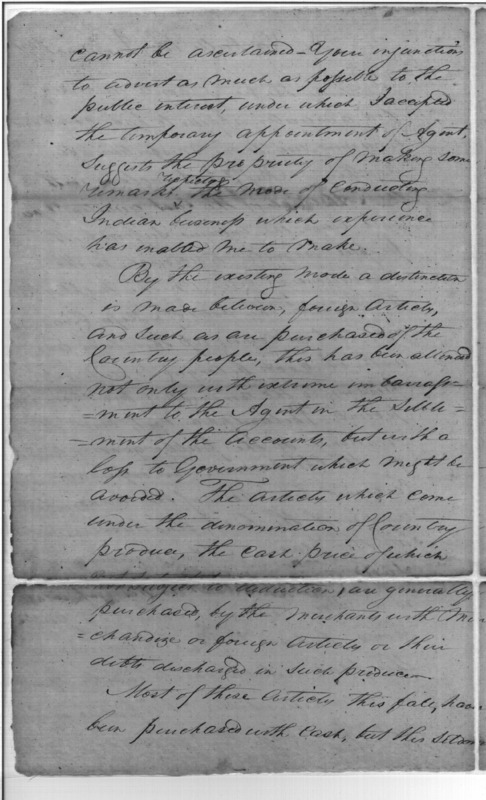 cannot be ascertained - Your injunctions
to advert as much as possible to the
public interest, under which I accepted
the temporary appointment of Agent,
Suggests the propriety of making some
remarks respecting the mode of Conducting
Indian business which experience
has enabled me to make.
By the existing mode a distinction
is made between, foreign Articles,
and Such as are purchased of the
Country people, this has been attended
not only with extreme imbarrass=
=ment to the Agent in the Settle=
=ment of the accounts, but with a
loss to Government which might be
avoided. The articles which come
under the denomination of Country
produce, the cash price of which
to deduction, are generally
purchased, by the Merchants with Mer
=chandize or foreign Articles or their
debts discharged in Such produce.
Most of these Articles this fall, have
been purchased with Cash, but this seldom